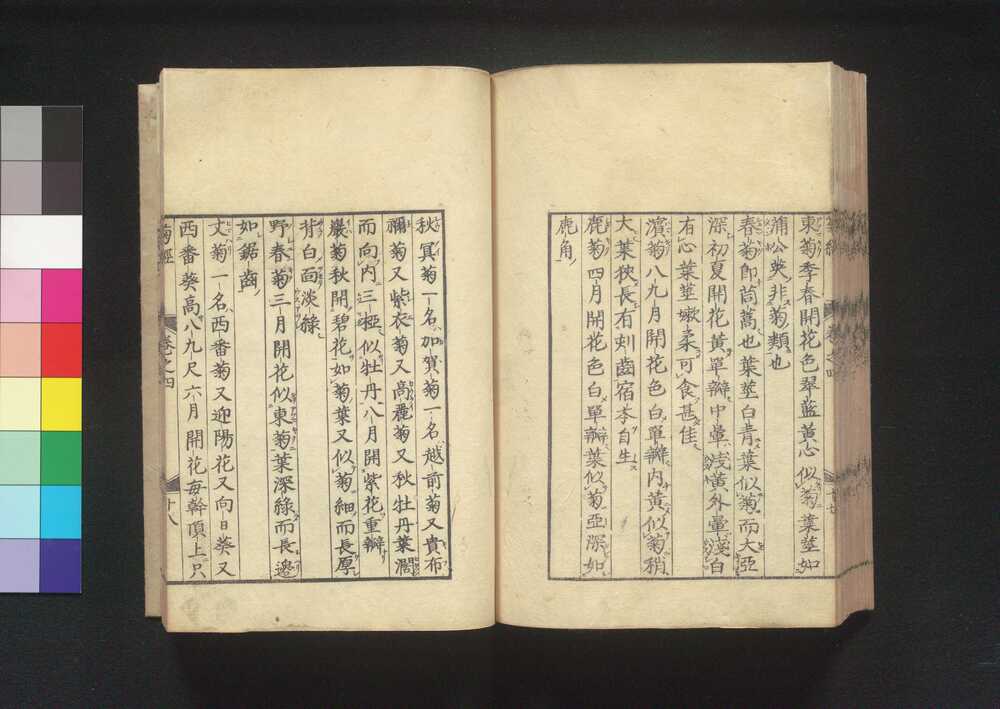 東菊季春開花色翠藍黃心似菊葉莖如
蒲公英非菊類也
春菊即茼蒿也葉莖白青葉似菊而大亞
深初夏開花黃單瓣中暈淺黃外暈淺白
有心葉莖嫩柔可食甚佳
濱菊八九月開花色白單瓣内黃似菊稍
大葉狹長有刻齒宿本自生
鹿菊四月開花色白單瓣葉似菊亞深如
鹿角
卷之四
十七
秋冥菊一名加賀菊一名越前菊又貴布
禰菊又紫衣菊又高麗菊又秋牡丹葉濶
而向内三椏似牡丹八月開紫花重瓣
巖菊秋開碧花如菊葉又似菊細而長厚
背白面淡綠
野春菊三月開花似東菊葉深綠而長邊
如鋸齒
丈菊一名西番菊又迎陽花又向日葵又
西番葵高八九尺六月開花每幹頂上只
菊經
卷之四
十八